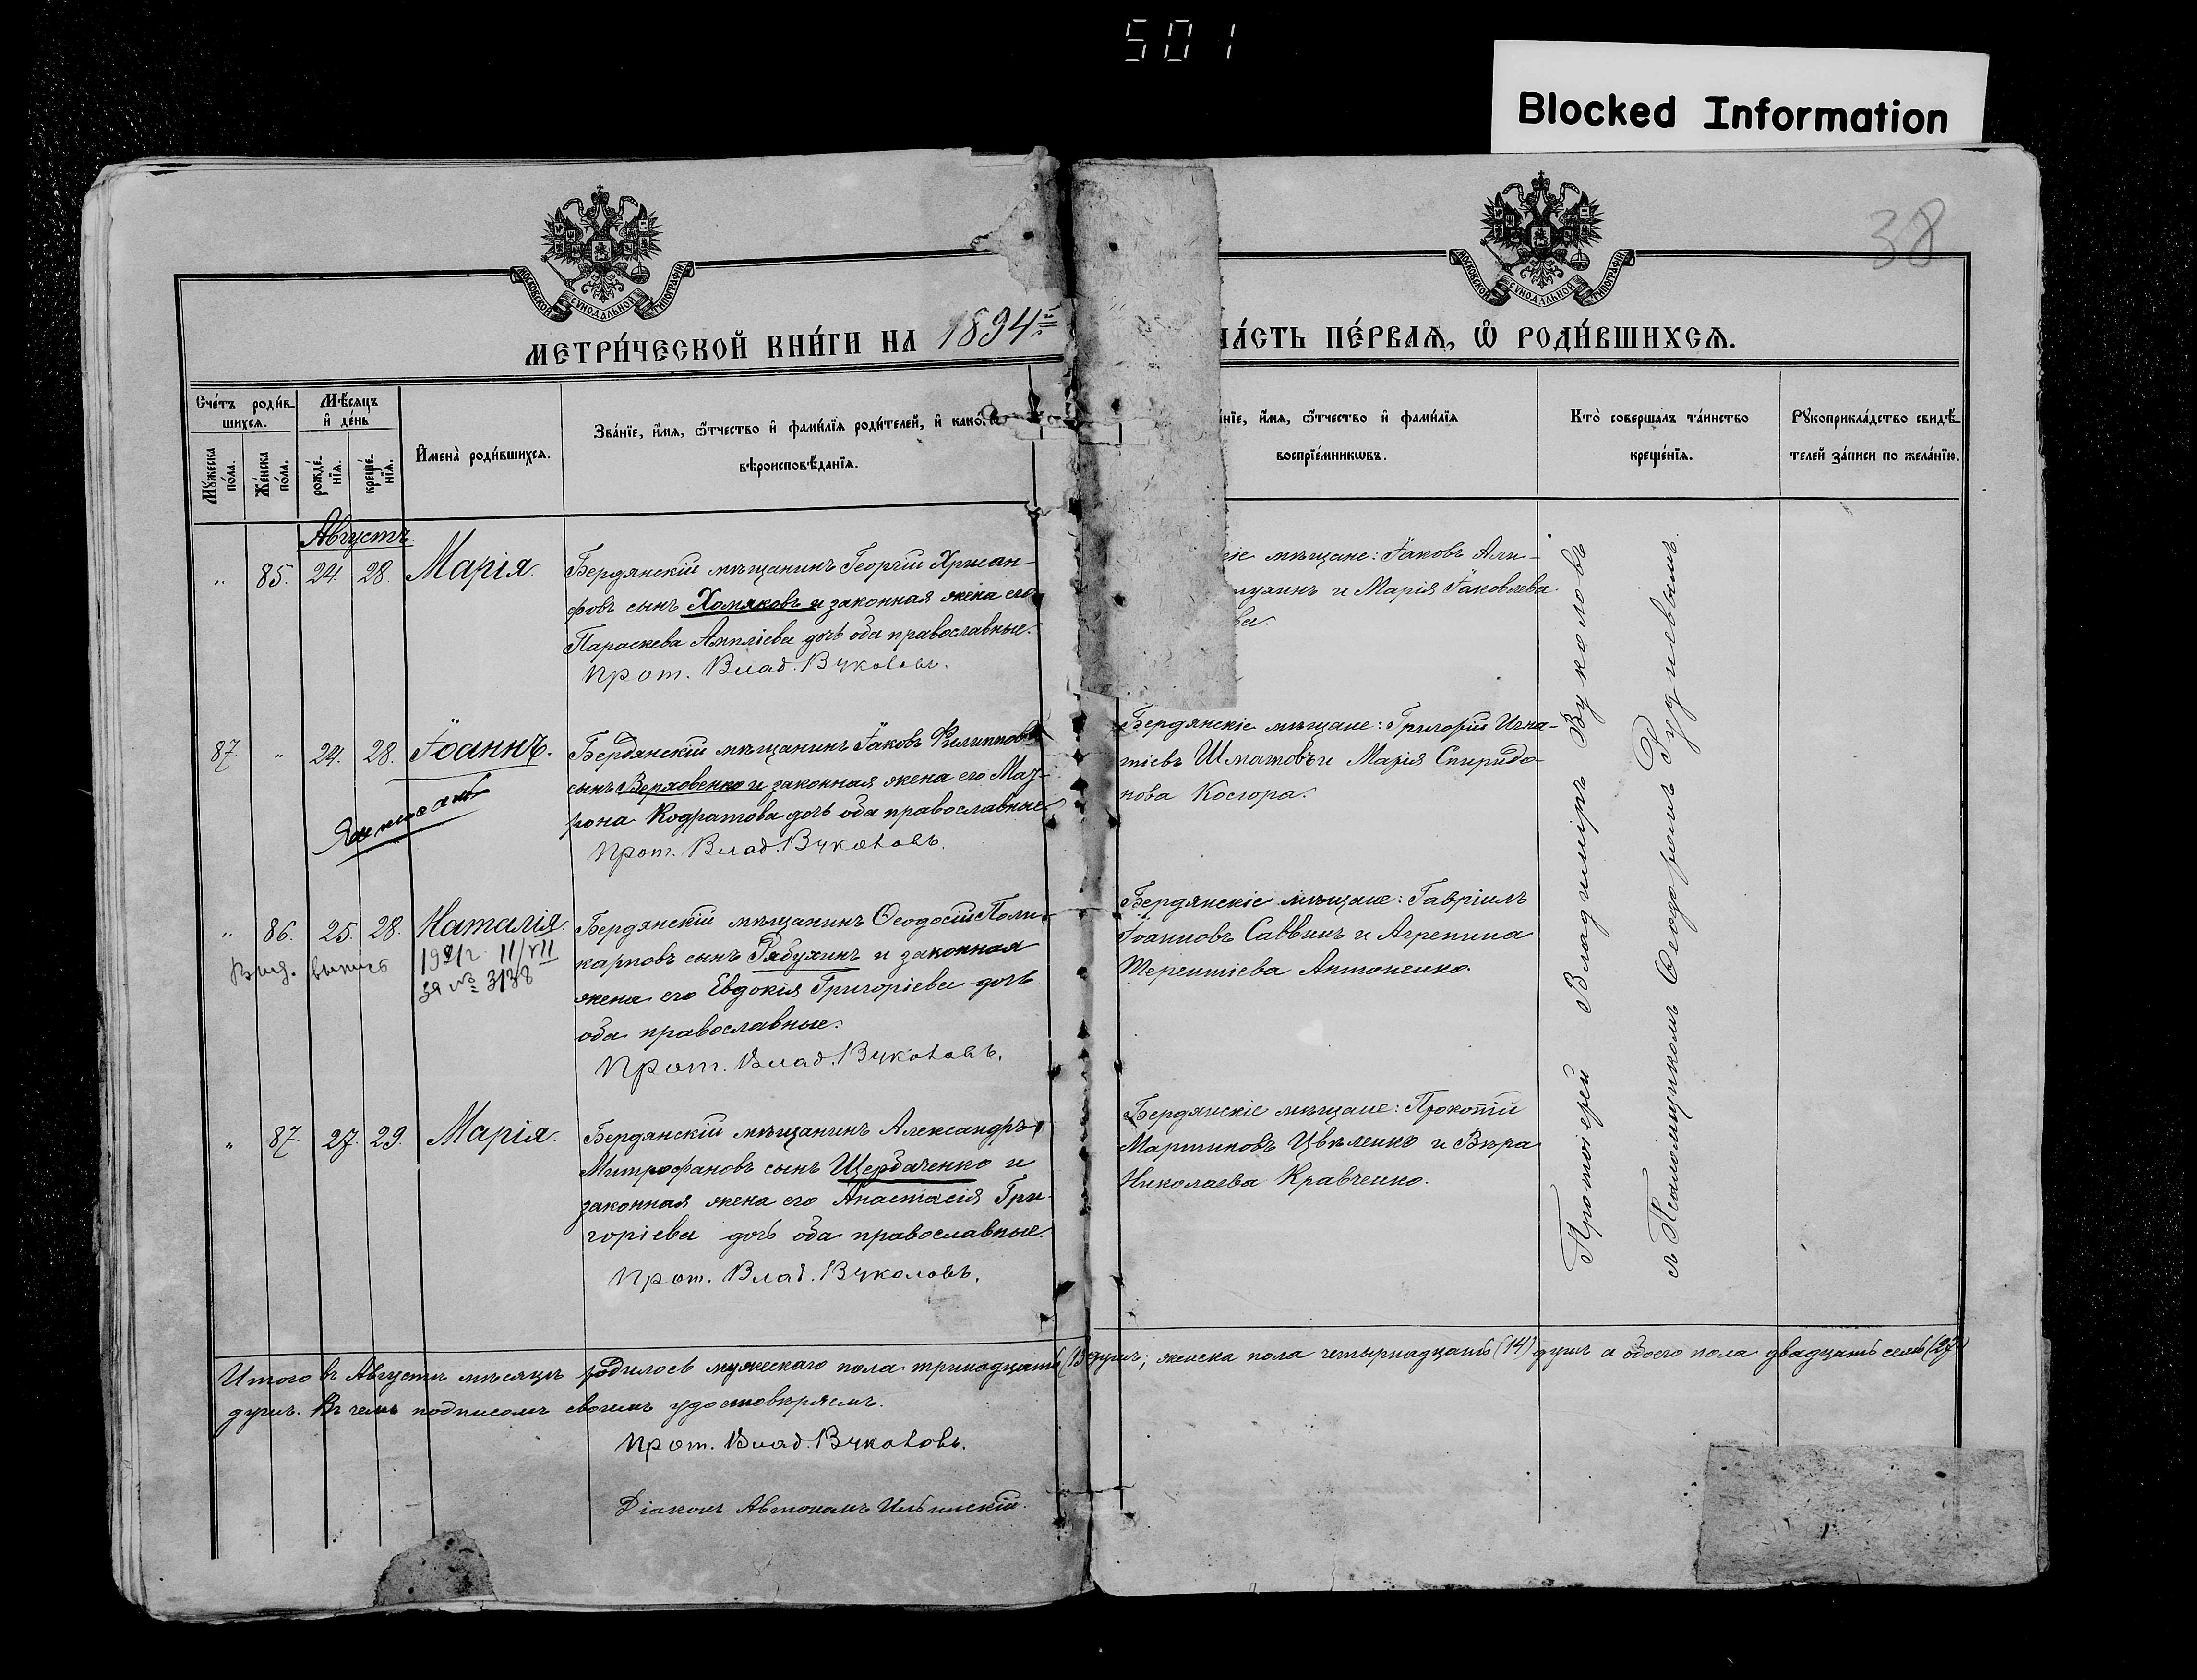 501
Blocked Information
38
МОСКОВСКОЙ СѴНОДАЛЬНОЙ ТИПОГРАФІИ
МОСКОВСКОЙ СѴНОДАЛЬНОЙ ТИПОГРАФІИ
МЕТРИ́ЧЕСКОЙ КНИ́ГИ НА 1894й
ЧА́СТЬ ПЕ́РВАѦ, Ѡ РОДИ́ВШИХСѦ.
Сче́тъ роди́в-
шихсѧ.
Мꙋ́жеска по́ла.
Же́нска по́ла.
Мѣ́сѧцъ
и҆ де́нь
рожде́-
нїѧ.
креще́-
нїѧ.
И҆мена̀ роди́вшихсѧ.
Зва́нїе, и҆́мѧ, ѻ҆́тчество и҆ фами́лїѧ роди́телей, и҆ како́гѡ
вѣроисповѣ́данїѧ.
нїе, и҆́мѧ, ѻ҆́тчество и҆ фами́лїѧ
воспрїе́мникѡвъ.
Кто̀ соверша́лъ та́инство
креще́нїѧ.
Рꙋкоприкла́дство свидѣ́-
телей за́писи по жела́нїю.
Августъ.
" 85. 24. 28. Марія.
Бердянскій мѣщанинъ Георгій Хрисан-
фовъ сынъ Хомяковъ и законная жена его
Параскева Амплieва дочь оба православные.
Прот. Влад. Вуколовъ.
кіе мѣщане: Іаковъ Али-
тухинъ и Марія Іаковлева
ва.
87. " 24. 28. Іоаннъ.
Бердянскій мѣщанинъ Іаковъ Филипповъ
сынъ Верховенко и законная жена его Мат-
рона Кодратова дочь оба православные.
Прот. Влад. Вуколовъ.
Бердянскіе мѣщане: Григорій Игна-
тіевъ Шматовъ и Марія Спиридо-
нова Косгора.
" 86. 25. 28. Наталія.
Выд. выпись
1921г. II/VII
за № 3138
Бердянскій мѣщанинъ Ѳеодосій Поли-
карповъ сынъ Рябухинъ и законная
жена его Евдокія Григоріева дочь
оба православные.
Прот. Влад. Вуколовъ.
Бердянскіе мѣщане: Гавріилъ
Іоанновъ Саввинъ и Агрепина
Терентіева Антоненко.
" 87. 27. 29. Марія.
Бердянскій мѣщанинъ Александръ
Митрофановъ сынъ Щербаченко и
законная жена его Анастасія Гри-
горіева дочь оба православные.
Прот. Влад. Вуколовъ.
Бердянскіе мѣщане: Прокопій
Мартиновъ Цвѣленко и Вѣра
Николаева Кравченко.
Протоіерей Владиміръ Вуколовъ
съ Псаломщикомъ Ѳеодоромъ Рудневымъ.
Итого въ Августѣ мѣсяцѣ родилось мужескаго пола тринадцать (13) душъ; женска пола четырнадцать (14) душъ а обоего пола двадцать семь (27)
душъ. Въ чемъ подписомъ своимъ удостовѣряемъ.
Прот. Влад. Вуколовъ.
Діаконъ Автономъ Ильинскій.